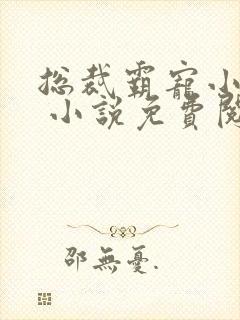 總裁霸寵小
小說免費閱
邵無憂.